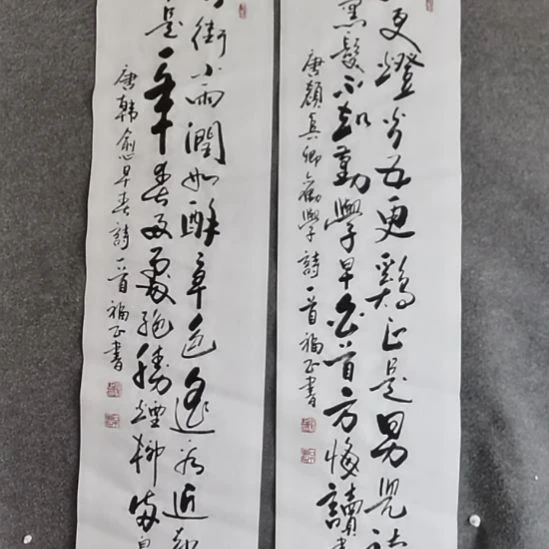 更燈火五更鷄正是男兒讀
黑髮不知勤學早白首方悔讀書
唐顏真卿勸學詩一首福正書
街小雨潤如酥草色遙看近却
是一年春好處絕勝煙柳滿皇
唐韓愈早春詩一首福正書